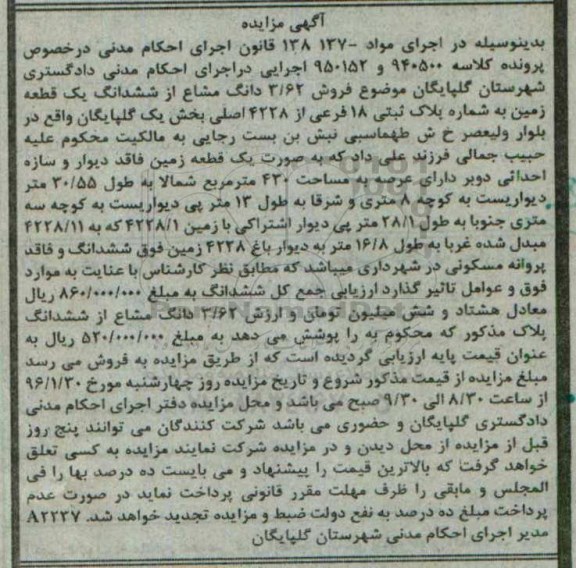 آگهی مزایده
بدینوسیله در اجرای مواد -۱۳۷ ۱۳۸ قانون اجرای احکام مدنی درخصوص
پرونده کلاسه ۹۴۰۵۰۰ و ۹۵۰۱۵۲ اجرایی دراجرای احکام مدنی دادگستری
شهرستان گلپایگان موضوع فروش ۳/۶۲ دانگ مشاع از ششدانگ یک قطعه
زمین به شماره پلاک ثبتی ۱۸ فرعی از ۴۲۲۸ اصلی بخش یک گلپایگان واقع در
بلوار ولیعصر خ ش طهماسبی نبش بن بست رجایی به مالکیت محکوم علیه
حبیب جمالی فرزند علی داد که به صورت یک قطعه زمین فاقد دیوار و سازه
احداثی دوبر دارای عرصه به مساحت ۴۳۰ مترمربع شمالا به طول ۳۰/۵۵ متر
دیواریست به کوچه ۸ متری و شرقا به طول ۱۳ متر پی دیواریست به کوچه سه
متری جنوبا به طول ۲۸/۱ متر پی دیوار اشتراکی با زمین ۴۲۲۸/۱ که به ۴۲۲۸/۱۱
مبدل شده غربا به طول ۱۶/۸ متر به دیوار باغ ۴۲۲۸ زمین فوق ششدانگ و فاقد
پروانه مسکونی در شهرداری میباشد که مطابق نظر کارشناس با عنایت به موارد
فوق و عوامل تاثیر گذارد ارزیابی جمع کل ششدانگ به مبلغ ۸۶۰/۰۰۰/۰۰۰ ریال
معادل هشتاد و شش میلیون تومان و ارزش ۳/۶۲ دانگ مشاع از ششدانگ
پلاک مذکور که محکوم به را پوشش می دهد به مبلغ ۵۲۰/۰۰۰/۰۰۰ ریال به
عنوان قیمت پایه ارزیابی گردیده است که از طریق مزایده به فروش می رسد
مبلغ مزایده از قیمت مذکور شروع و تاریخ مزایده روز چهارشنبه مورخ ۹۶/۱/۳۰
از ساعت ۸/۳۰ الی ۹/۳۰ صبح می باشد و محل مزایده دفتر اجرای احکام مدنی
دادگستری گلپایگان و حضوری می باشد شرکت کنندگان می توانند پنج روز
قبل از مزایده از محل دیدن و در مزایده شرکت نمایند مزایده به کسی تعلق
خواهد گرفت که بالاترین قیمت را پیشنهاد و می بایست ده درصد بها را فی
المجلس و مابقی را ظرف مهلت مقرر قانونی پرداخت نماید در صورت عدم
پرداخت مبلغ ده درصد به نفع دولت ضبط و مزایده تجدید خواهد شد. ۸۲۲۳۷
مدیر اجرای احکام مدنی شهرستان گلپایگان